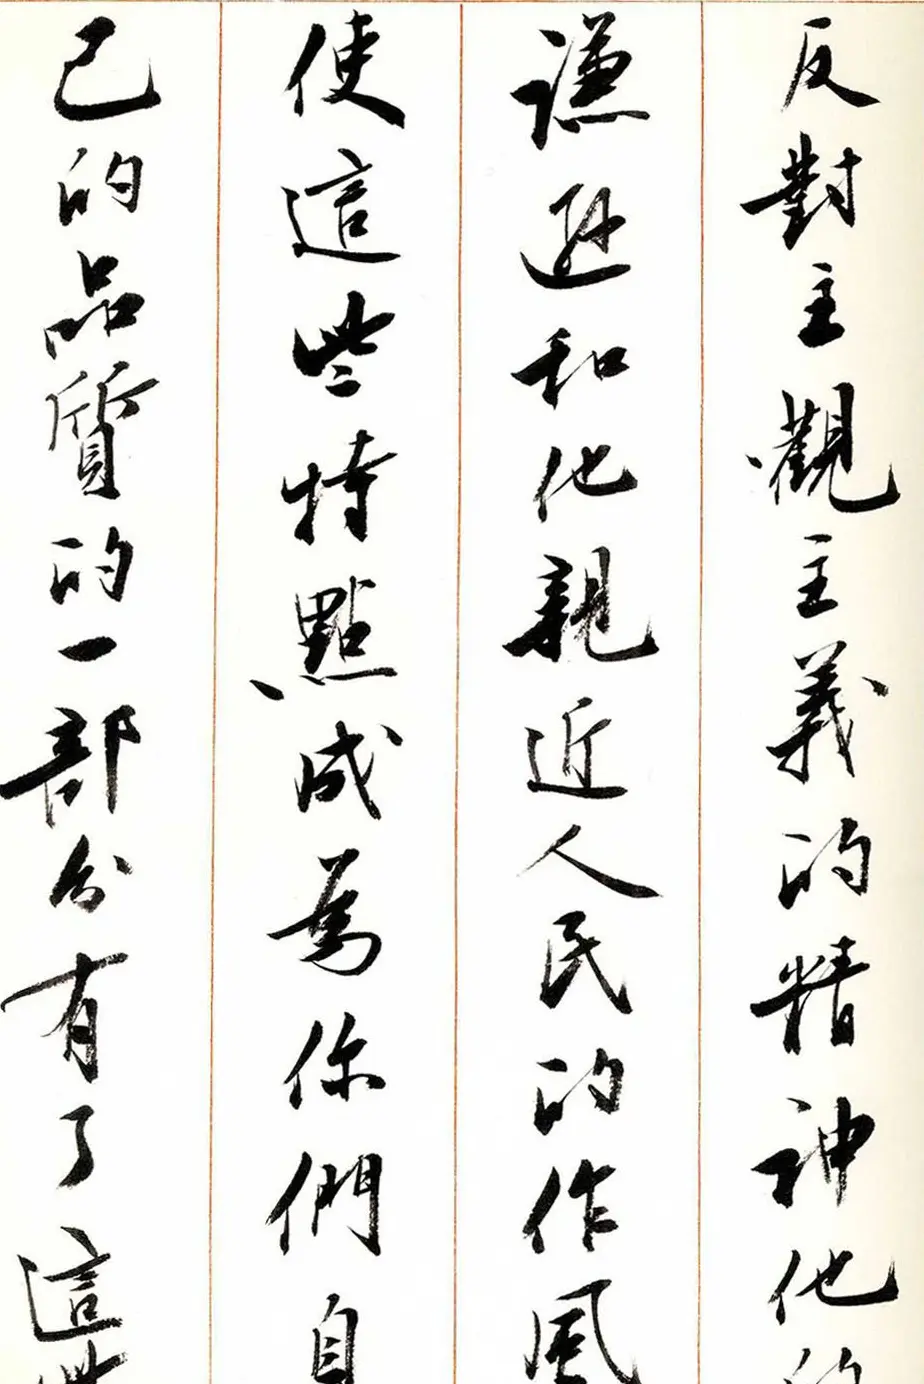 反對主觀主義的精神他的
謙遜和他親近人民的作風
使這些特點成為你們自
己的品質的一部分有了這些